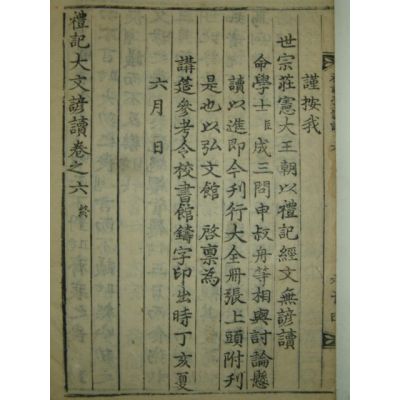 謹按我
世宗莊憲大王朝以禮記經文無諺讀
命學士臣成三問申叔舟等相與討論懸
讀以進即今刊行大全冊張上頭附刊
是也以弘文館 啓稟爲
講筵參考令校書館鑄字印出時丁亥夏
六月 日
禮記大文諺讀卷之六 終